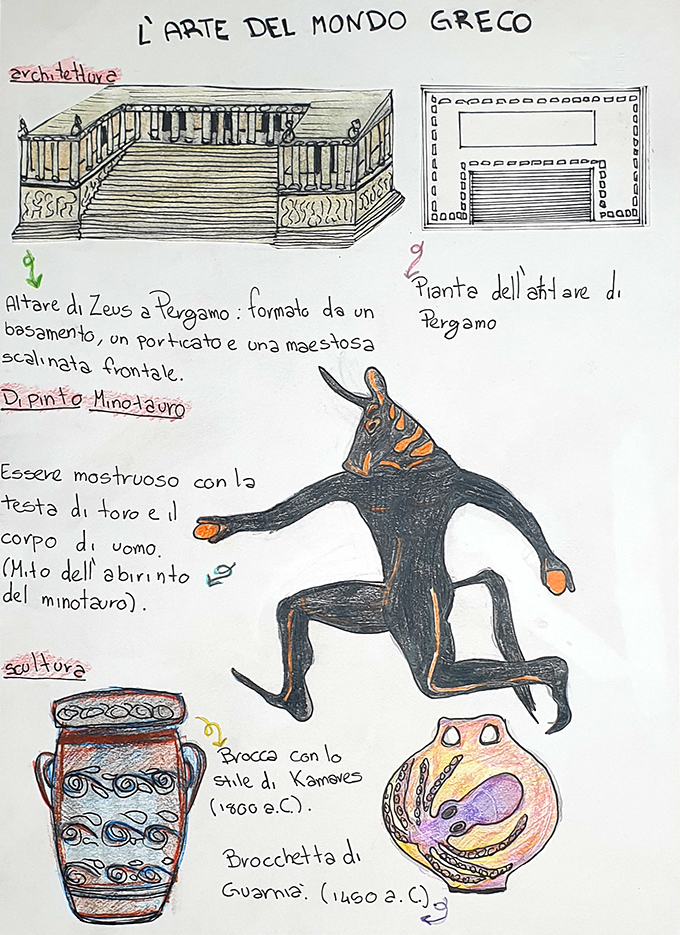 L'ARTE DEL MONDO GRECO
architettura
Altare di Zeus a Pergamo: formato da un
basamento, un porticato e una maestosa
scalinata frontale.
Pianta dell'altare di
Pergamo
Dipinto Minotauro
Essere mostruoso con la
testa di toro e il
corpo di uomo.
(Mito dell'abirinto
del minotauro).
scultura
Brocca con lo
stile di Kamares
(1800 a.C.).
Brocchetta di
(1450 a.C.)